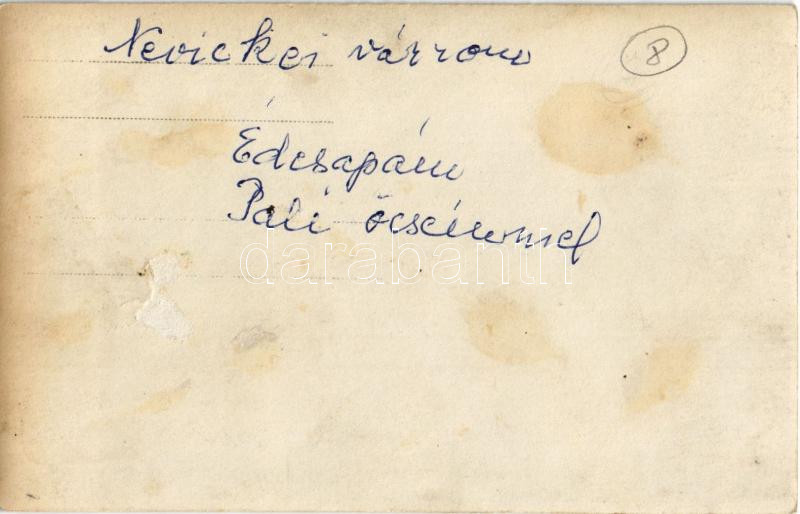 Nevickei várrom
8
Édesapám
Pali öcsémmel
darabanth